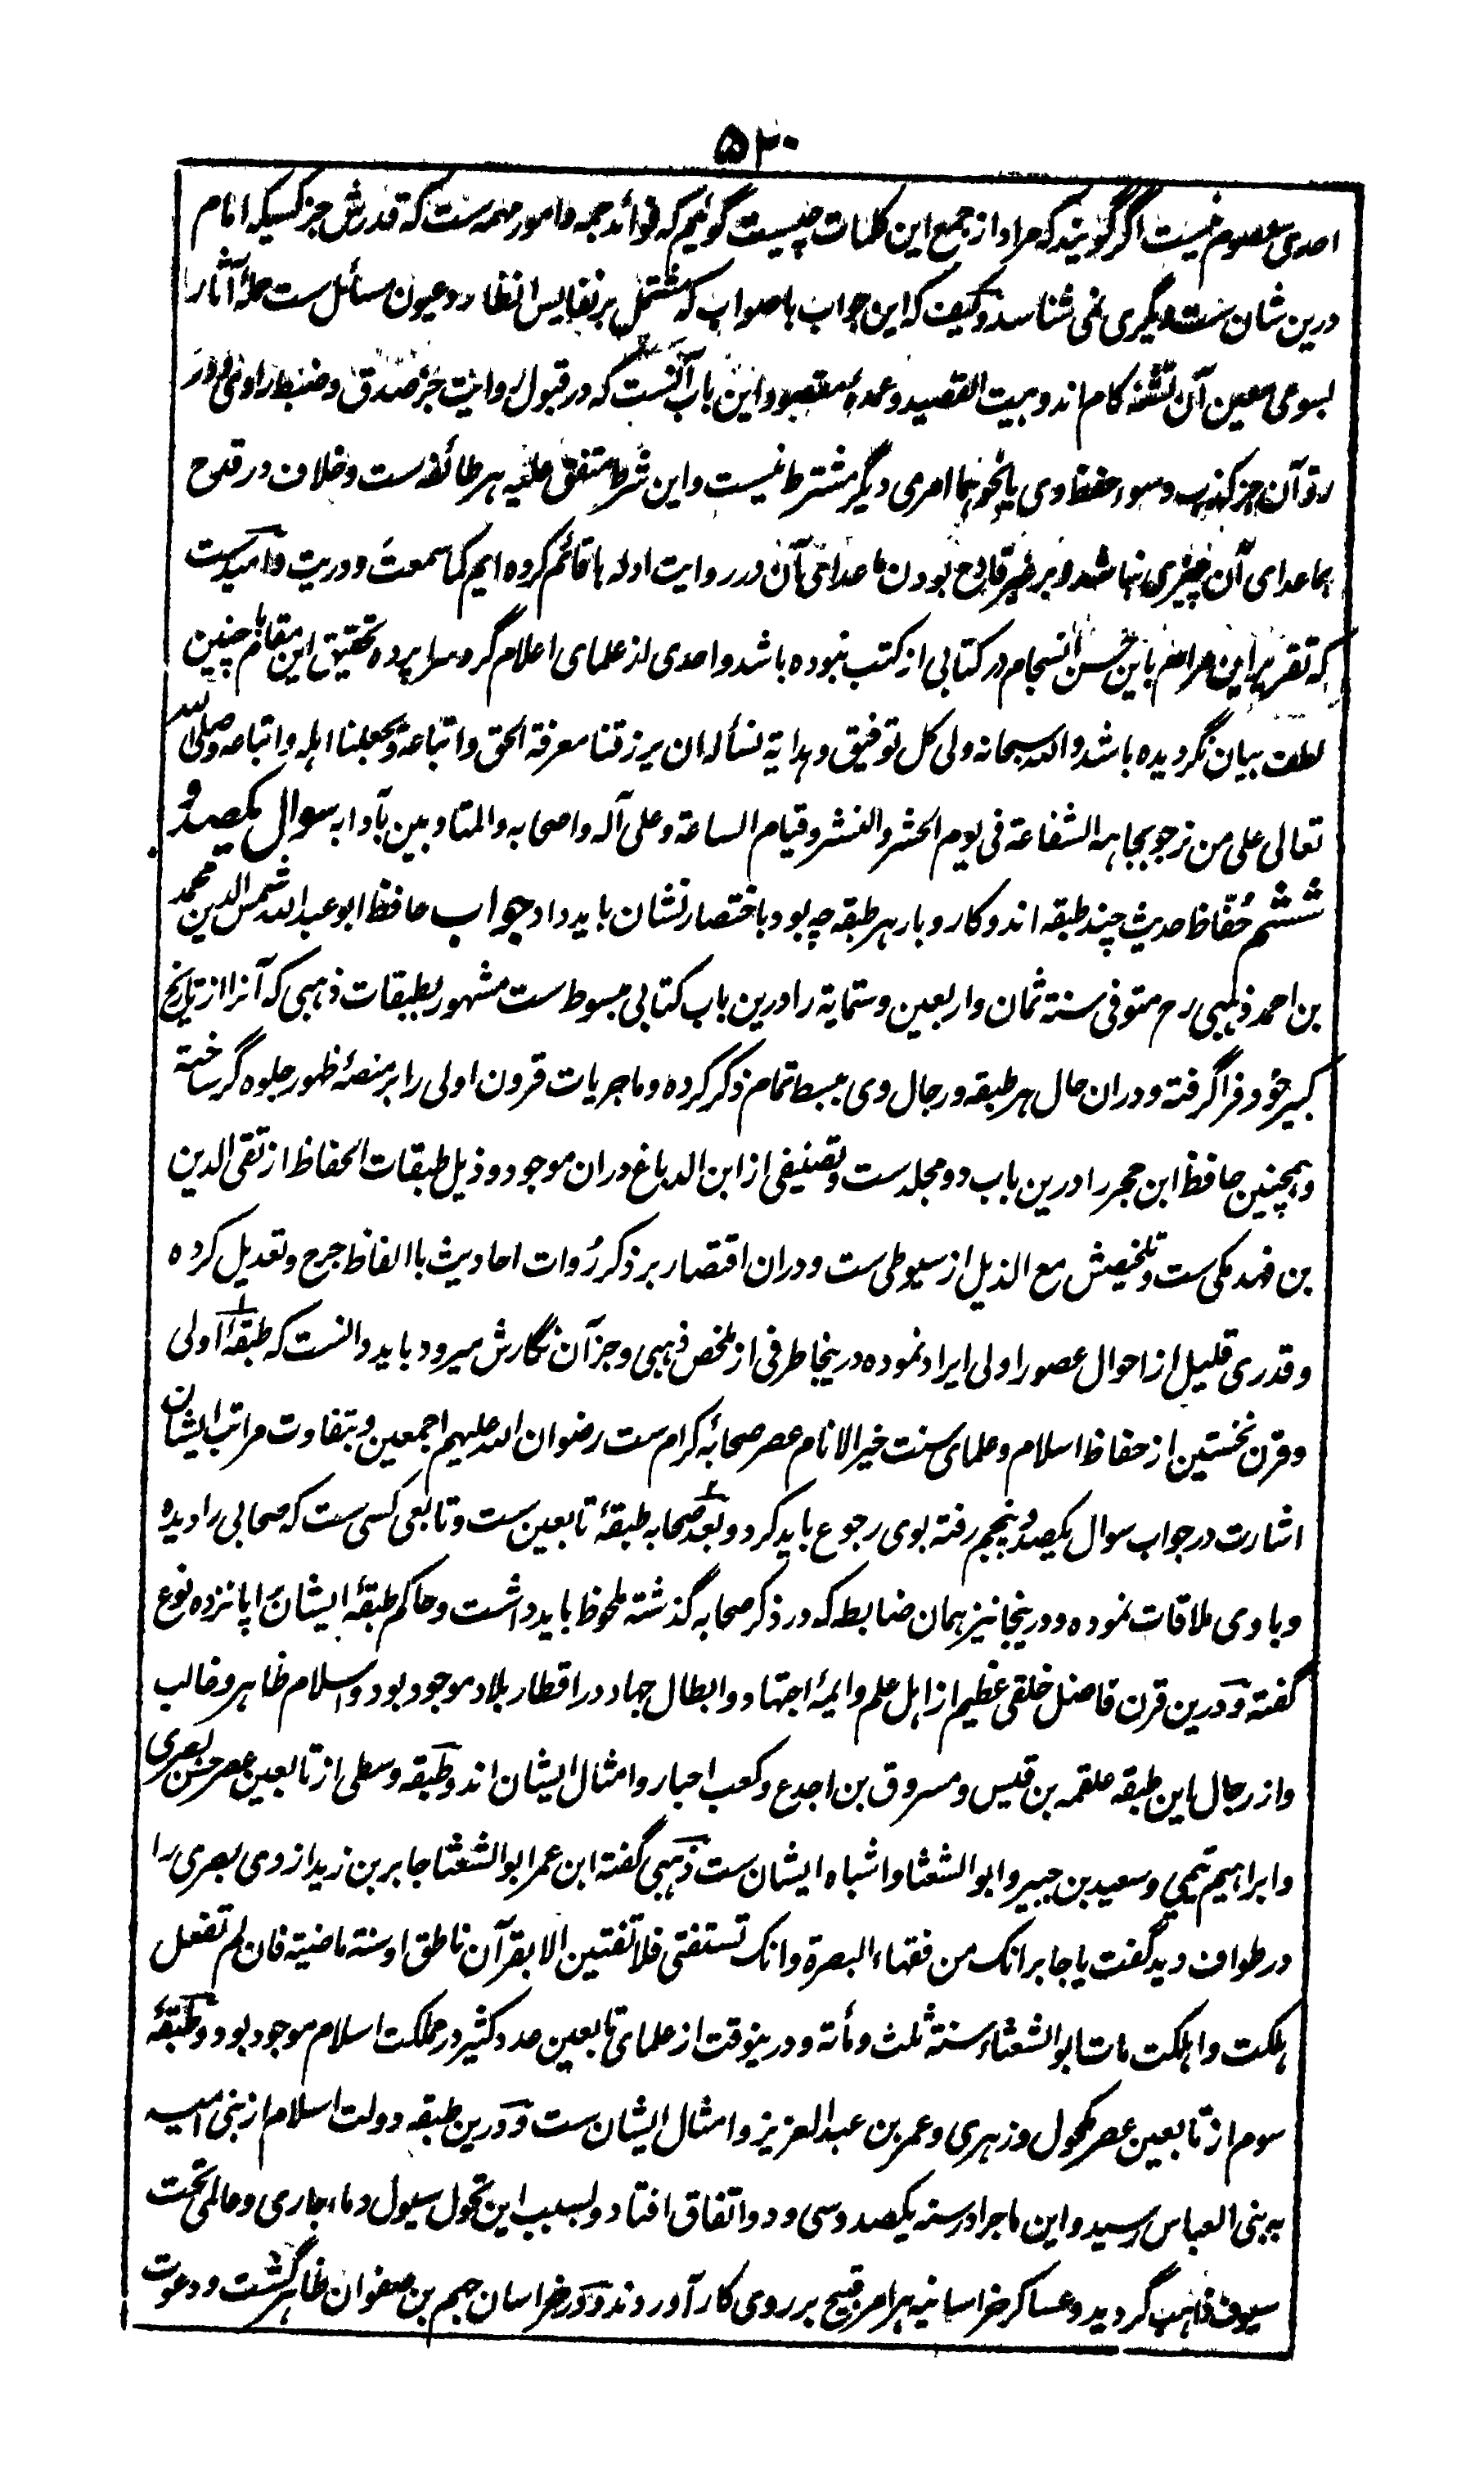 ۵۲۰
احدی معصوم نیست اگر گویند که مراد از جمع این کلمات چیست گوئیم که فوائد جمه و امور مهمه ست که قدرش جز کسیکه امام
درین شان ست دیگری نمی شناسد و کیف که این جواب باصواب که مشتمل بر نفایس انظار و عیون مسائل ست حملۀ آثار را
بسوی معین آن تشنه کام اند و بیت القصید و عمدۀ مقصود این باب آنست که در قبول روایت جز صدق و ضبط راوی و در
رد آن جز کذب و سوء حفظ وی یا نحو هما امری دیگر مشترط نیست و این شرط متفق علیه هر طائفه ست و خلاف در قدح
بماعدای آن چیزی نباشد و بر غیر قادح بودن ماعدای آن در روایت ادله ها قائم کرده ایم کما سمعت و دریت و امیدست
که تقریر این مرام باین حسن انسجام در کتابی از کتب نبوده باشد و احدی از علمای اعلام گرد سراپرده تحقیق این مقام باچنین
لطف بیان نگردیده باشد والله سبحانه ولی کل توفیق و هدایة نسأله ان یرزقنا معرفة الحق و اتباعه و یجعلنا اهله و اتباعه وصلی الله
تعالی علی من نرجو بجاهه الشفاعة فی یوم الحشر والنشر و قیام الساعة و علی آله و اصحابه والمتادبین بآدابه سوال یکصد و
ششم حُفّاظ حدیث چند طبقه اند و کار و بار هر طبقه چه بود باختصار نشان باید داد جواب حافظ ابو عبدالله شمس الدین محمد
بن احمد ذهبی رح متوفی سنة ثمان و اربعین و ستمایة را درین باب کتابی مبسوط ست مشهور بطبقات ذهبی که آنرا از تاریخ
کبیر خود فراگرفته و دران حال هر طبقه و رجال وی ببسط تمام ذکر کرده و ماجریات قرون اولی را بر منصۀ ظهور جلوه گر ساخته
و همچنین حافظ ابن حجر را درین باب دو مجلد ست و تصنیفی از ابن الدباغ دران موجود و ذیل طبقات الحفاظ از تقی الدین
بن فهد مکی ست و تلخیصش مع الذیل از سیوطی ست و دران اقتصار بر ذکر رُوات احادیث با الفاظ جرح و تعدیل کرده
و قدری قلیل از احوال عصور اولی ایراد نموده درینجا طرفی از ملخص ذهبی و جز آن نگارش میرود باید دانست که طبقۀ اولی
و قرن نخستین از حفاظ اسلام و علمای سنت خیر الانام عصر صحابۀ کرام ست رضوان الله علیهم اجمعین و بتفاوت مراتب ایشان
اشارت در جواب سوال یکصد و پنجم رفته بوی رجوع باید کرد و بعد صحابه طبقۀ تابعین ست و تابعی کسی ست که صحابی را دیده
و با وی ملاقات نموده و درینجا نیز همان ضابطه که در ذکر صحابه گذشته ملحوظ باید داشت و حاکم طبقۀ ایشان را پانزده نوع
گفته و درین قرن فاضل خلقی عظیم از اهل علم و ایمۀ اجتهاد و ابطال جهاد در اقطار بلاد موجود بود و اسلام ظاهر و غالب
و از رجال این طبقه علقمه بن قیس و مسروق بن اجدع و کعب احبار و امثال ایشان اند و طبقه وسطی از تابعین عصر حسن بصری
و ابراهیم تیمی و سعید بن جبیر و ابو الشعثا و اشباه ایشان ست ذهبی گفته ابن عمر ابو الشعثا جابر بن زید ازدی بصری را
در طواف دید گفت یا جابر انک من فقهاء البصرة و انک تستفتی فلا تفتین الا بقرآن ناطق او سنة ماضیة فان لم تفعل
هلکت و اهلکت مات ابو الشعثاء سنة ثلث و مأة و درینوقت از علمای تابعین عدد کثیر در مملکت اسلام موجود بود و طبقۀ
سوم از تابعین عصر مکحول و زهری و عمر بن عبد العزیز و امثال ایشان ست و درین طبقه دولت اسلام از بنی امیه
به بنی العباس رسید و این ماجرا در سنه یکصد و سی و دو اتفاق افتاد و بسبب این تحول سیول دماء جاری و عالمی تحت
سیوف ذاهب گردید و عساکر خراسانیه هر امر قبیح بر روی کار آوردند و در خراسان جهم بن صفوان ظاهر گشت و دعوت